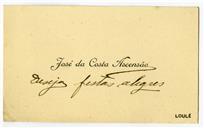 José da Costa Ascensão
Deseja festas alegres
LOULÉ